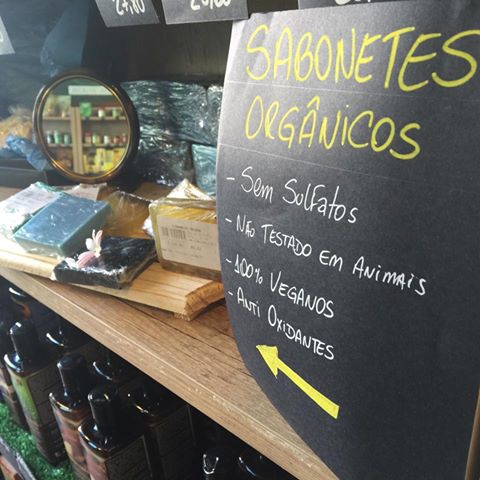 SABONETES
ORGÂNICOS
- Sem Sulfatos
- Não Testado em Animais
- 100% Veganos
- Anti Oxidantes